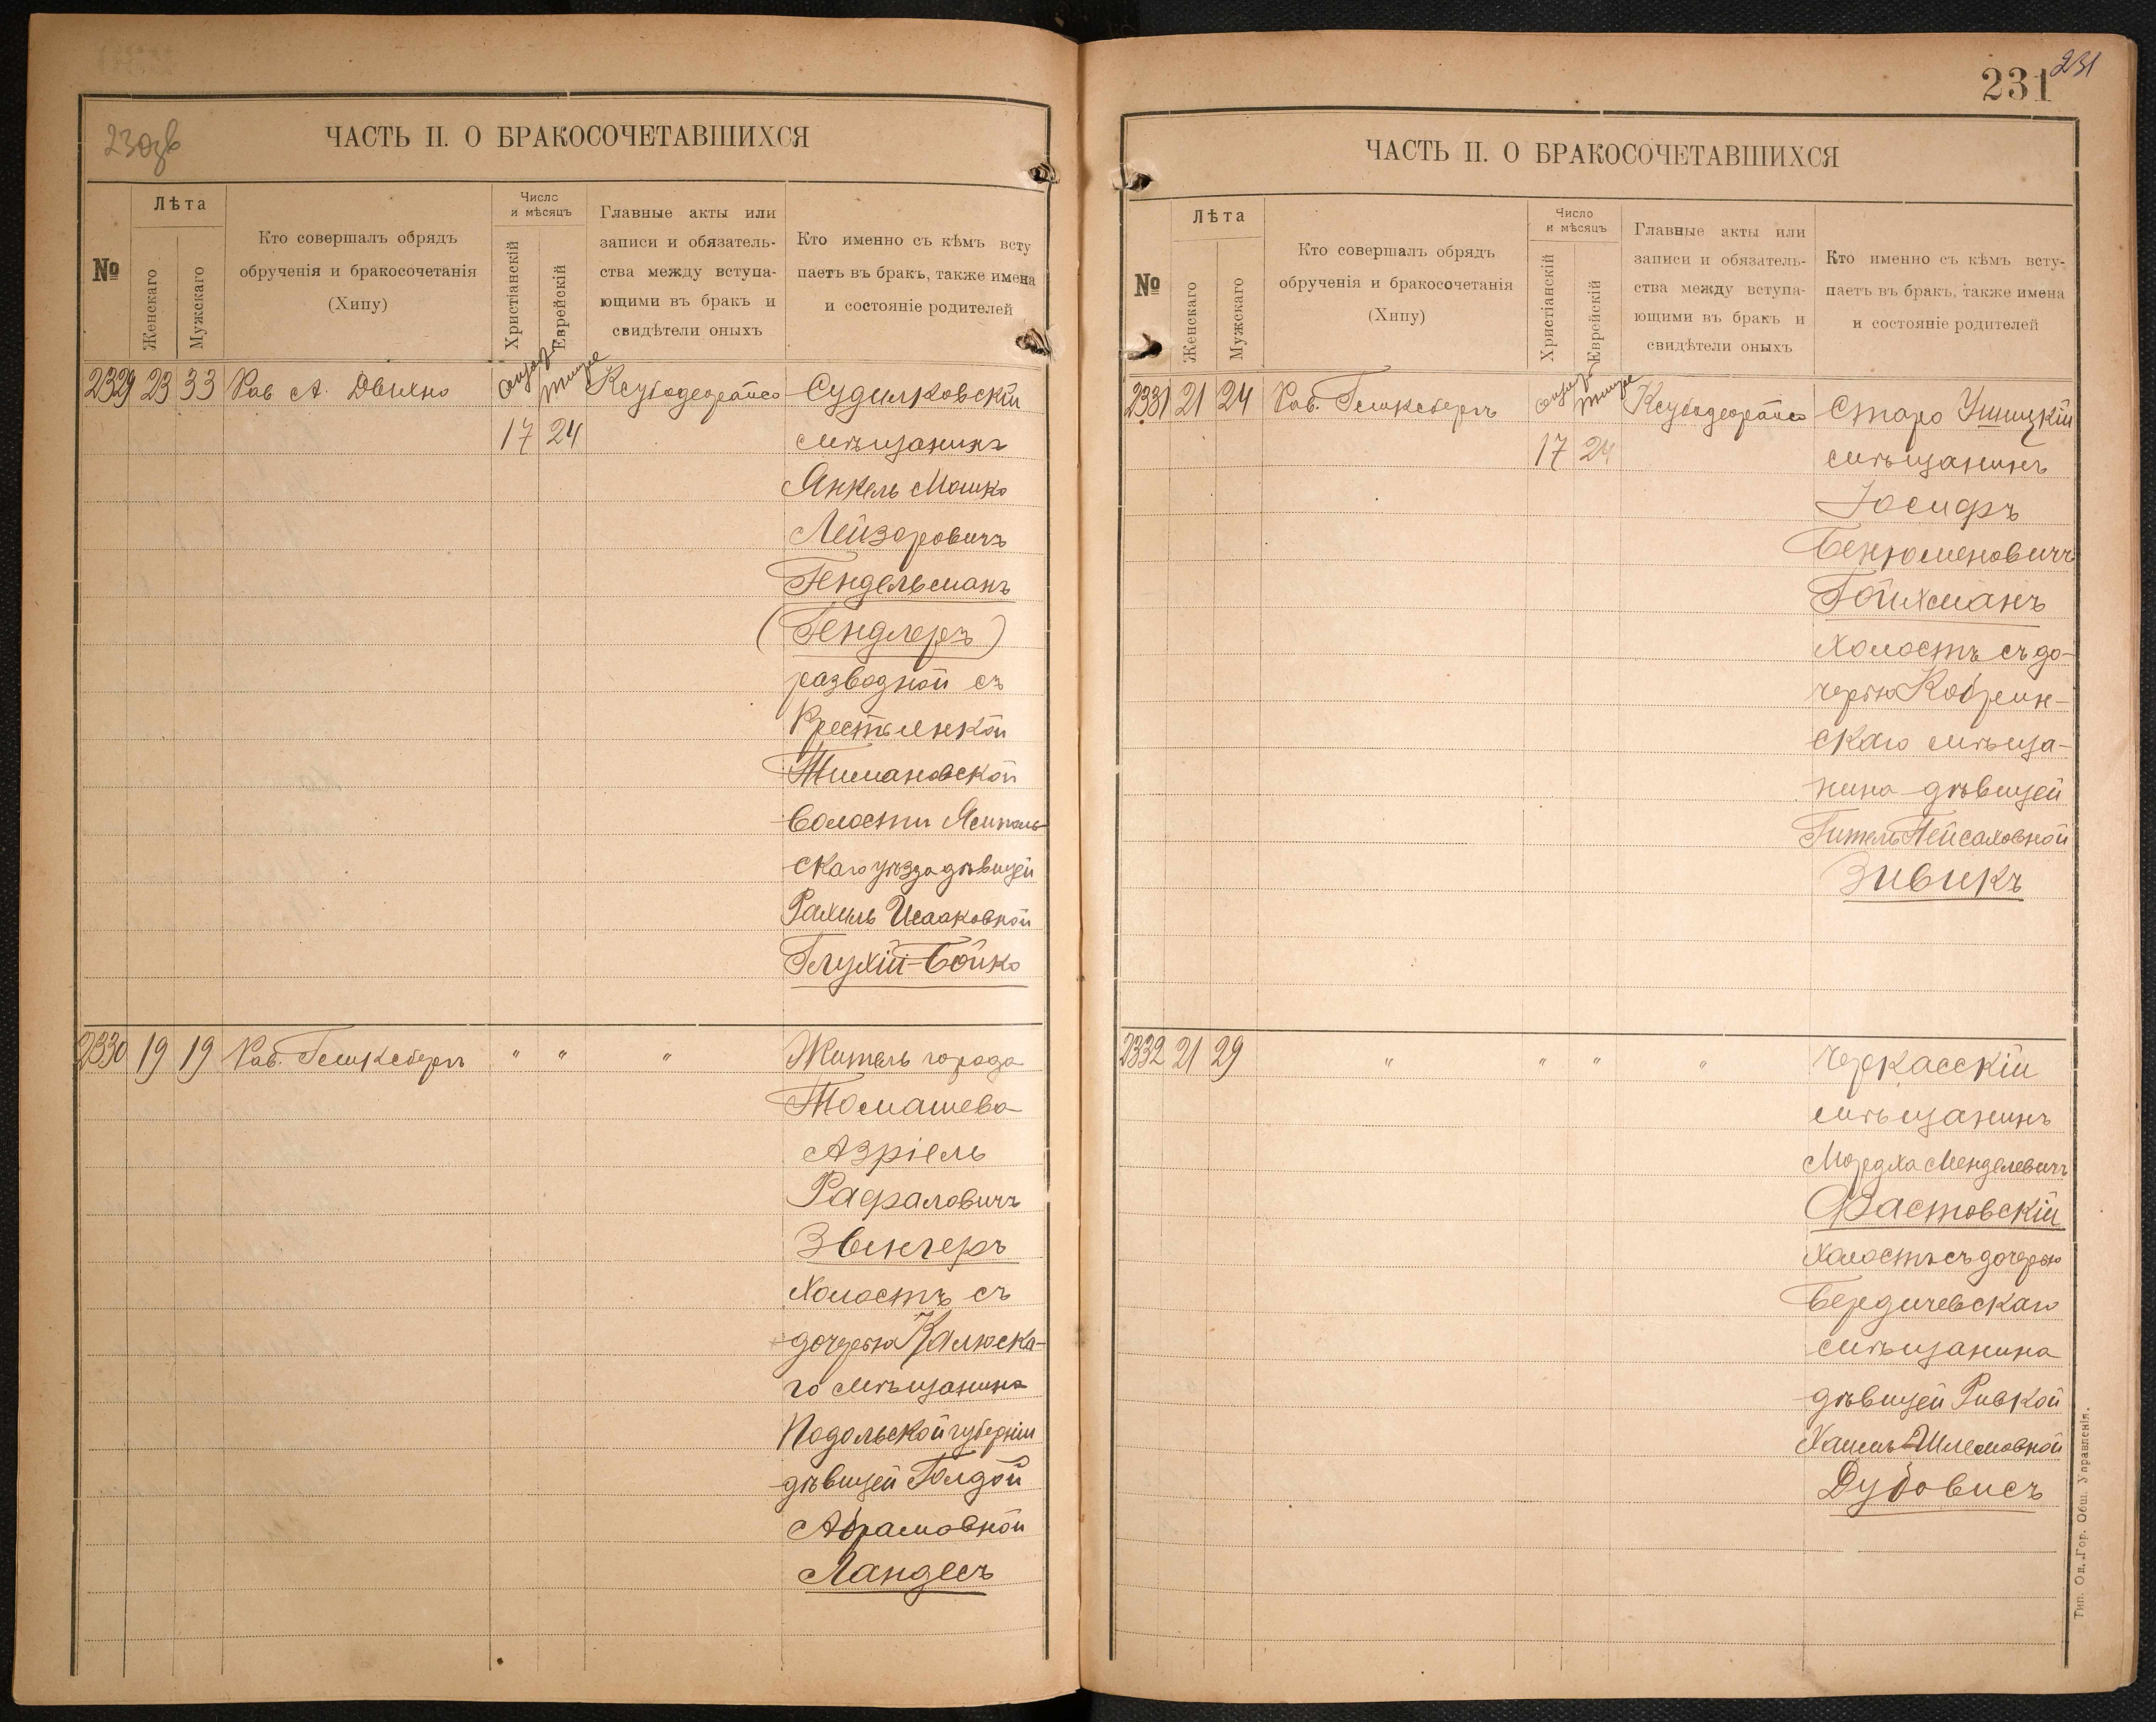 230 об
ЧАСТЬ II. О БРАКОСОЧЕТАВШИХСЯ
№
Лѣта
Женскаго
Мужскаго
Кто совершалъ обрядъ
обрученія и бракосочетанія
(Хипу)
Число
и мѣсяцъ
Христіанскій
Еврейскій
Главные акты или
записи и обязатель-
ства между вступа-
ющими въ бракъ и
свидѣтели оныхъ
Кто именно съ кѣмъ всту
паетъ въ бракъ, также имена
и состояніе родителей
2329 23 33 Рав А. Двихно Тишре Судилковскій
17 24 мѣщанинъ
Янкель Мошко
Лейзоровичъ
Гендельманъ
(Гендлеръ)
разводной съ
Крестьянкой
Тимановской
Волости Ямполь-
скаго уѣзда дѣвицей
Рахиль Исааковной
Глухій-Бойко
2330 19 19 Рав. Гешксбергъ " " " Житель города
Томашева
Азріель
Рафаловичъ
Звингеръ
Холостъ съ
дочерью Калюска-
го мѣщанина
Подольской губерніи
дѣвицей Голдой
Абрамовной
Ландесъ
231
231
ЧАСТЬ II. О БРАКОСОЧЕТАВШИХСЯ
№
Лѣта
Женскаго
Мужскаго
Кто совершалъ обрядъ
обрученія и бракосочетанія
(Хипу)
Число
и мѣсяцъ
Христіанскій
Еврейскій
Главные акты или
записи и обязатель-
ства между вступа-
ющими въ бракъ и
свидѣтели оныхъ
Кто именно съ кѣмъ всту-
паетъ въ бракъ, также имена
и состояніе родителей
2331 21 24 Рав. Гешксбергъ Тишре Старо Ушицкій
17 24 мѣщанинъ
Іосифъ
Бенюменовичъ
Гойхманъ
Холостъ съ до-
черью Кобрин-
скаго мѣща-
нина дѣвицей
Гитель Пейсаховной
Зивикъ
2332 21 29 " " " " Черкасскій
мѣщанинъ
Мордха Менделевичъ
Фастовскій
Холостъ съ дочерью
Бердичевскаго
мѣщанина
дѣвицей Ривкой
Хаимъ-Шлемовной
Дубовисъ
Тип. Од. Гор. Общ. Управленія.